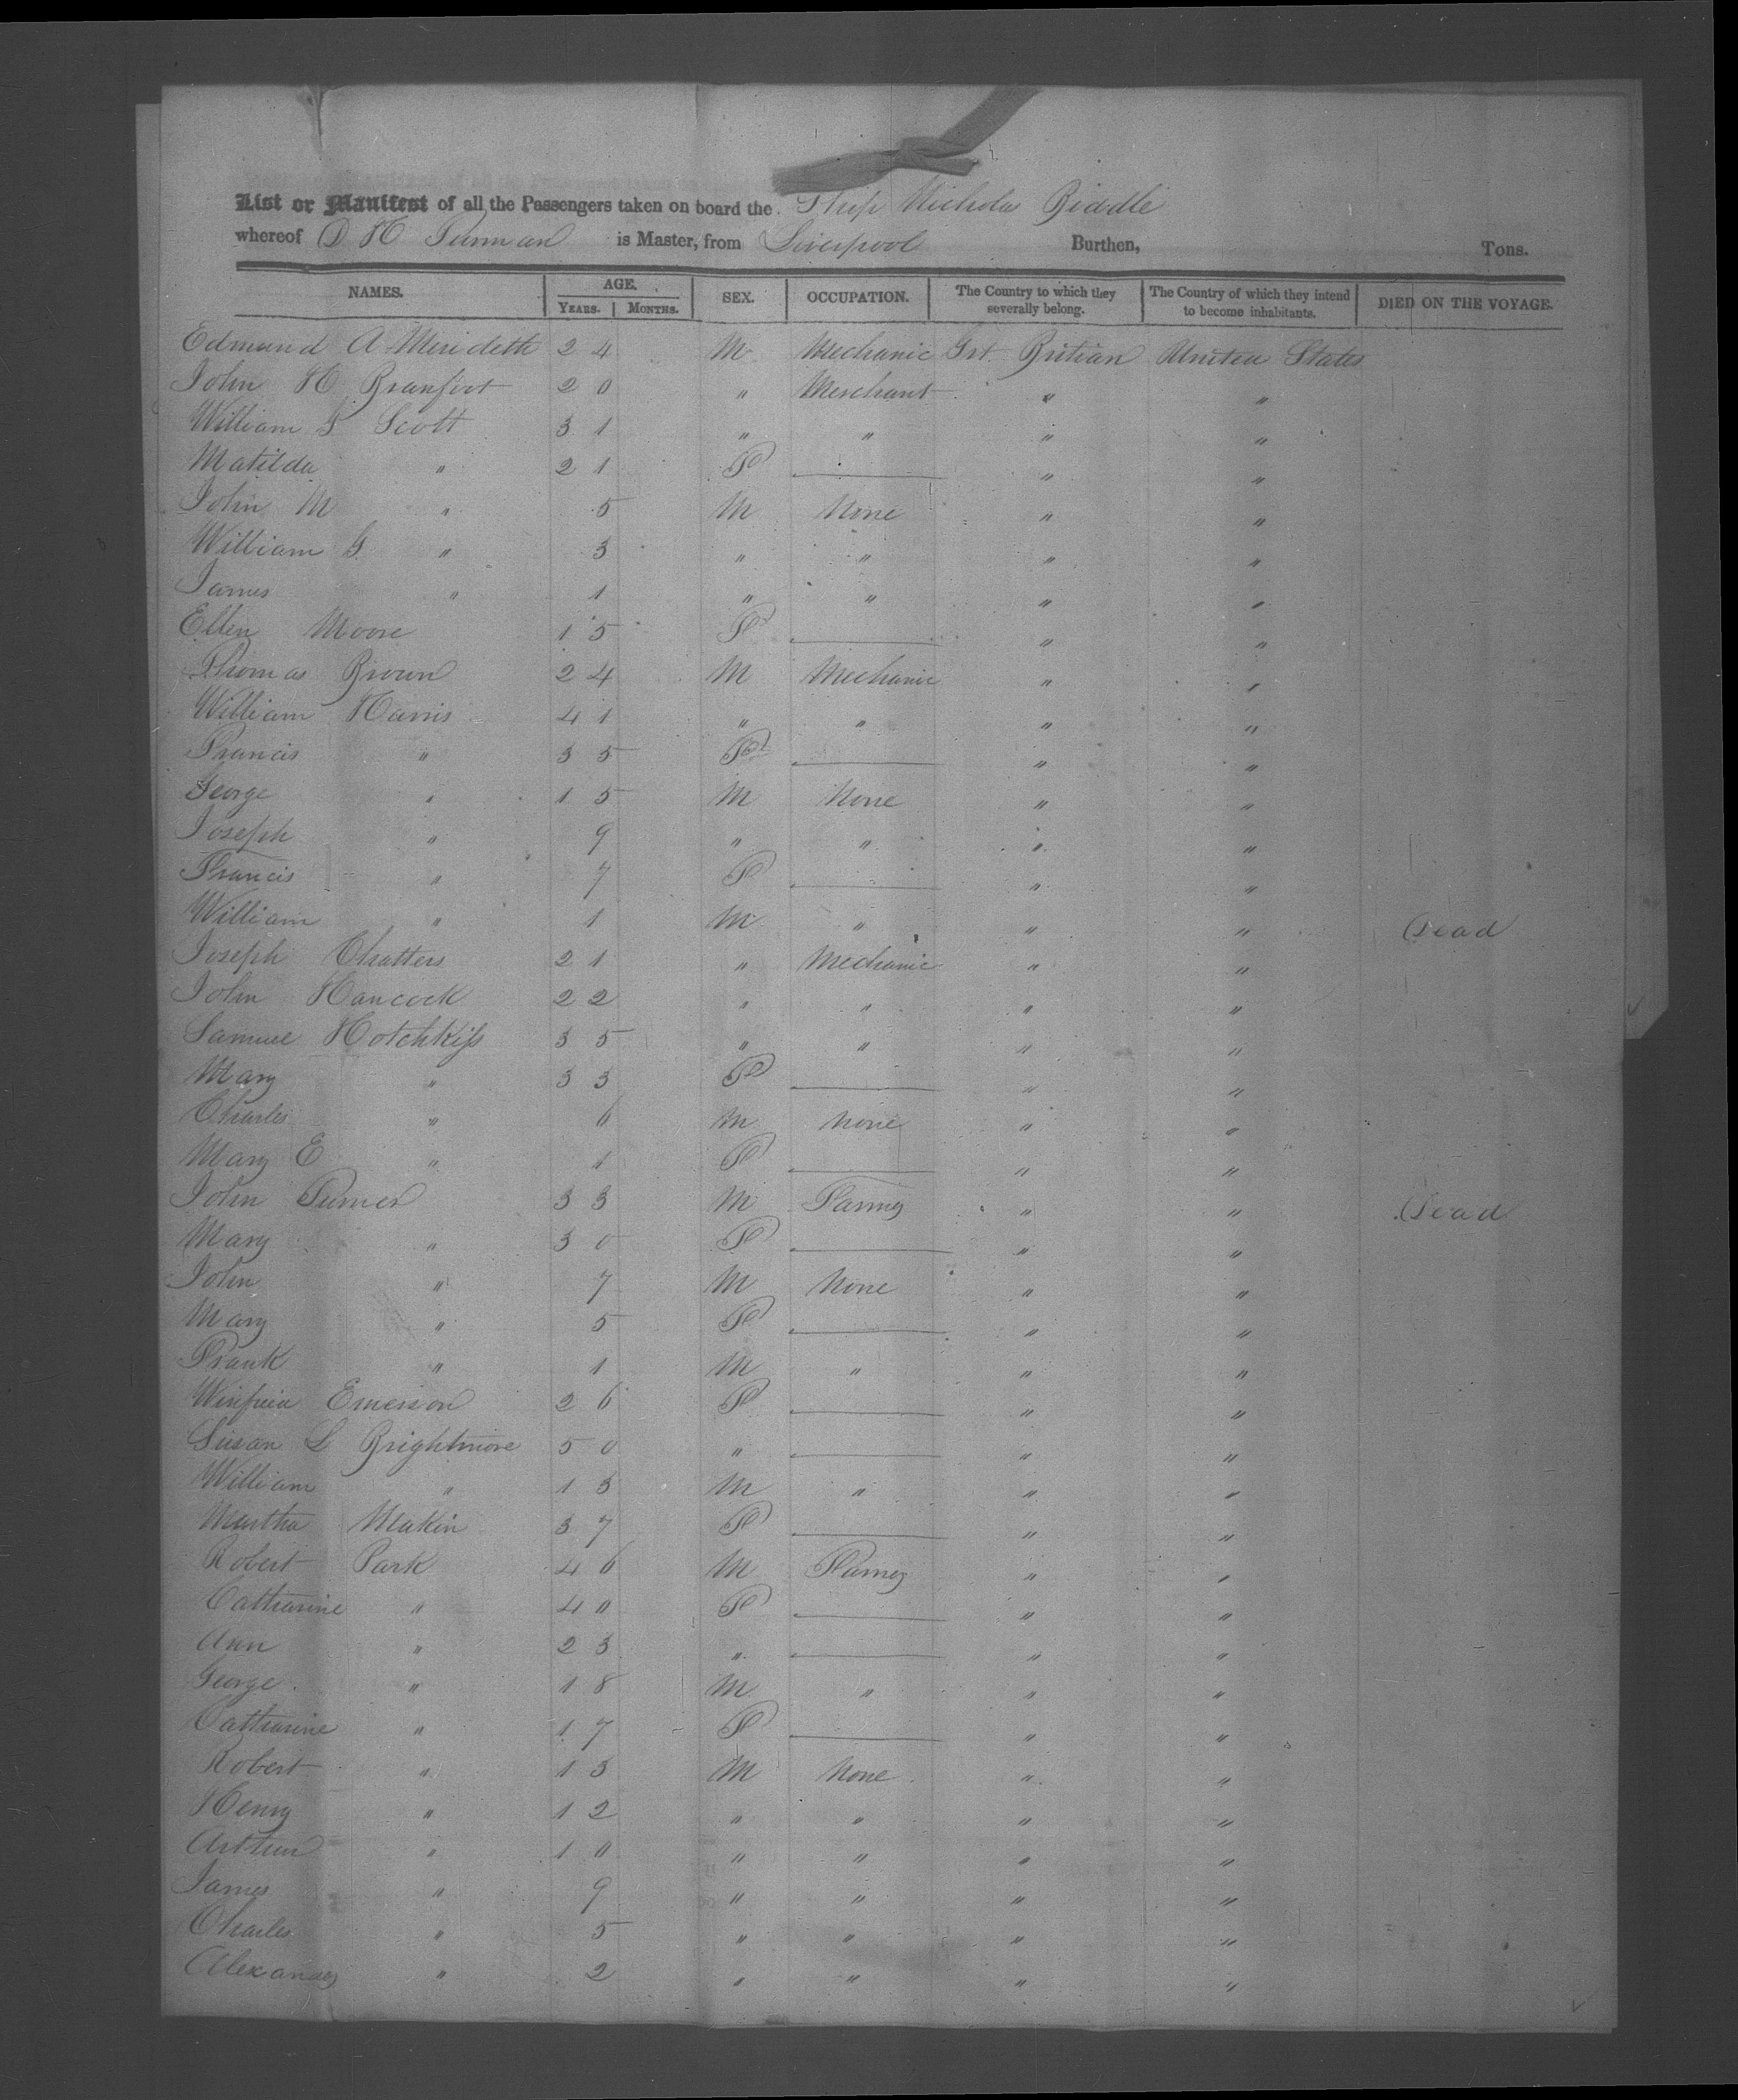 List or Manifest of all the Passengers taken on board the Ship Nicholas Biddle
whereof D H Truman is Master, from Liverpool Burthen, Tons.
NAMES. AGE. SEX. OCCUPATION. The Country to which they severally belong. The Country of which they intend to become inhabitants. DIED ON THE VOYAGE.
YEARS. MONTHS.
Edmund A Merideth 24 M Mechanic Grt Britian United States
John H 20 " Merchant " "
William G Scott 31 " " " "
Matilda " 21 F " "
John M " 5 M None " "
William G " 3 " " " "
James " 1 " " " "
Ellen Moore 15 F " "
Thomas Brown 24 M Mechanic " "
William Harris 41 " " " "
Francis " 35 F " "
George " 15 M None " "
Joseph " 9 " " " "
Francis " 7 F " "
William " 1 M " " " Dead
Joseph Chatters 21 " Mechanic " "
John Hancock 22 " " " "
Samuel Hotchkiss 35 " " " "
Mary " 33 F " "
Charles " 6 M None " "
Mary E " 1 F " "
John Turner 33 M Farmer " " Dead
Mary " 30 F " "
John " 7 M None " "
Mary " 5 F " "
Frank " 1 M " " "
Emerson 26 F " "
Susan L Brightmore 50 " " "
William " 13 M " " "
Martha Makin 37 F " "
Robert Park 46 M Farmer " "
Catharine " 40 F " "
Ann " 23 " " "
George " 18 M " " "
Catharine " 17 F " "
Robert " 13 M None " "
Henry " 12 " " " "
Arthur " 10 " " " "
James " 9 " " " "
Charles " 5 " " " "
Alexander " 2 " " " "